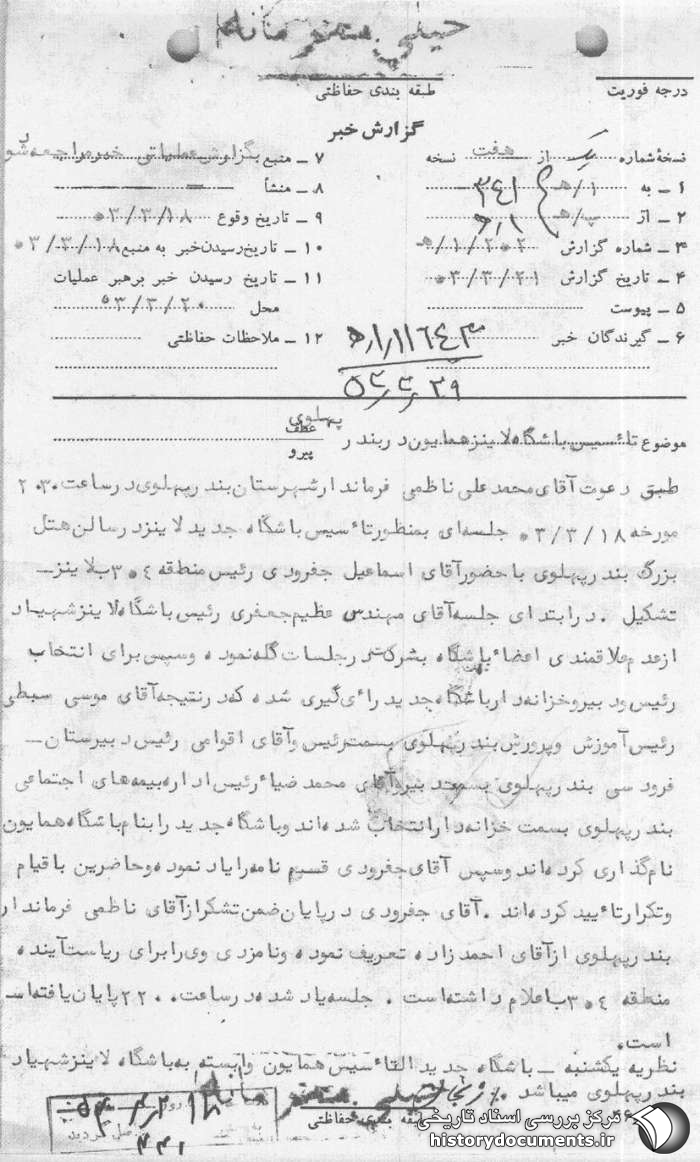 خیلی محرمانه
درجه فوریت
طبقه بندی حفاظتی
گزارش خبر
نسخهٔ شماره یک از هفت نسخه
۱ ـ به ۱/هـ ۳۴۱
۲ ـ از پ/هـ ۱
۳ ـ شماره گزارش ۲۰۲/۱/هـ
۴ ـ تاریخ گزارش ۲۱/۳/۵۳
۵ ـ پیوست
۶ ـ گیرندگان خبر
۷ ـ منبع بگزارش عملیاتی خبر مراجعه شود
۸ ـ منشأ
۹ ـ تاریخ وقوع ۱۸/۳/۵۳
۱۰ ـ تاریخ رسیدن خبر به منبع ۱۸/۳/۵۳
۱۱ ـ تاریخ رسیدن خبر برهبر عملیات
محل ۲۰/۳/۵۳
۱۲ ـ ملاحظات حفاظتی
موضوع تأسیس باشگاه لاینز همایون در بندر پهلوی
عطف
پیرو
طبق دعوت آقای محمد علی ناظمی فرماندار شهرستان بندرپهلوی در ساعت ۲۰۳۰
مورخه ۱۸/۳/۵۳ جلسه‌ای بمنظور تأسیس باشگاه جدید لاینز در سالن هتل
بزرگ بندرپهلوی با حضور آقای اسماعیل جفرودی رئیس منطقه ۳۰۴ ب لاینز ـ
تشکیل . در ابتدای جلسه آقای مهندس عظیم جعفری رئیس باشگاه لاینز شهیاد
از عدم علاقمندی اعضاء باشگاه بشرکت در جلسات گله نموده وسپس برای انتخاب
رئیس ودبیر و خزانه‌دار باشگاه جدید رأی گیری شده که در نتیجه آقای موسی سبطی
رئیس آموزش وپرورش بندرپهلوی بسمت رئیس و آقای اقوامی رئیس دبیرستان ـ
فردوسی بندرپهلوی بسمت دبیر و آقای محمد ضیاء رئیس اداره بیمه‌های اجتماعی
بندرپهلوی بسمت خزانه‌دار انتخاب شده‌اند وباشگاه جدید را بنام باشگاه همایون
نام گذاری کرده‌اند وسپس آقای جفرودی قسم نامه را یاد نموده وحاضرین با قیام
وتکرار تأیید کرده‌اند . آقای جفرودی در پایان ضمن تشکر از آقای ناظمی فرماندار
بندرپهلوی از آقای احمدزاده تعریف نموده ونامزدی وی را برای ریاست آینده
منطقه ۳۰۴ ب اعلام داشته است . جلسه یاد شده در ساعت ۲۲۰۰ پایان یافته‌است
است.
نظریه یکشنبه ـ باشگاه جدید التأسیس همایون وابسته به باشگاه لاینز شهیاد
بندرپهلوی میباشد
طبقه بندی حفاظتی
مرکز بررسی اسناد تاریخی
historydocuments.ir